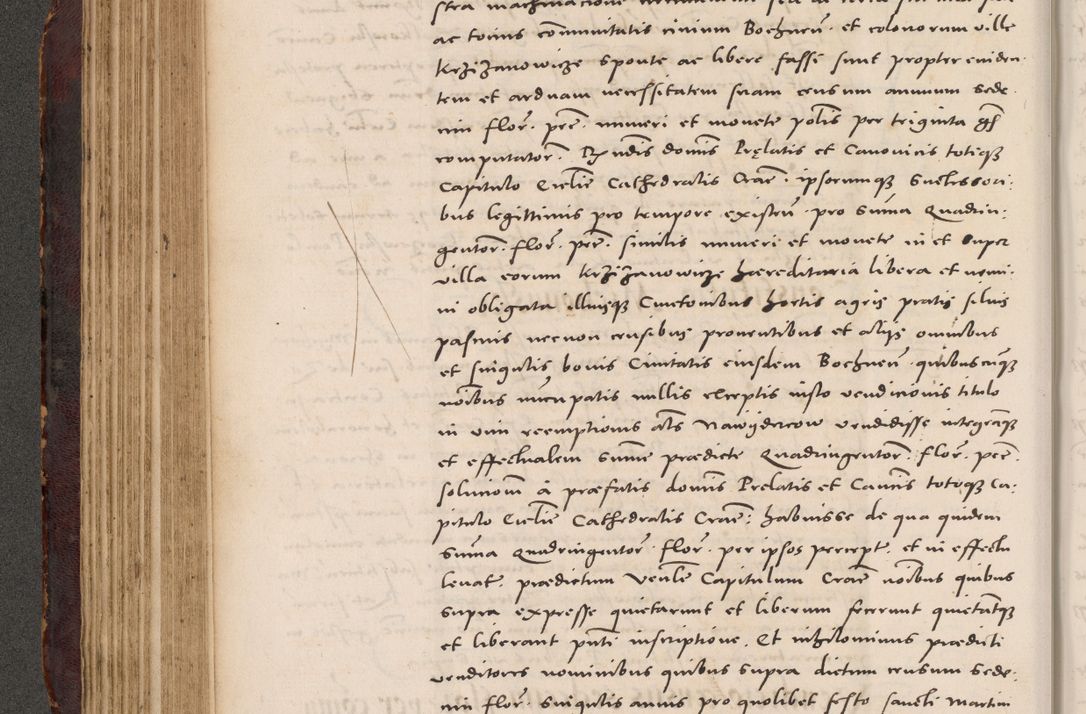 ac totius cõmunitatis civium Bochneñ et colonorum ville
Krzizanowicze sponte ac libere fassi sunt propter eviden
tem et arduam necessitatem suam censum annuum sede
cim floř. peč. numeri et monete polis per triginta gš
computatoř. Rndis domis Prelatis et Canonicis totiqz
Capitulo Ecclie Cathedralis Crač. ipsorumqz Suecessori:
bus legittimis pro tempore existeñ. pro Suma Quadrin:
gentoř. floř. peč. similis numeri et monete in et super
villa eorum Krzizanowicze hæreditaria libera et nemi:
ni obligata illiusqz Cmetonibus hortis agris pratis silvis
pascuis necnon censibus proventibus et aliis omnibus
et singulis bonis Civitatis eiusdem Bochneñ. quibuscũqz
noibus nũcupatis nullis exceptis iusto vendicionis titulo
in vim reemptionis als Nawyderкow vendidisse integrãqz
et effectualem Sume prædicte Quadringentoř. floř. peč.
solucionem à præfatis domis Prelatis et Canicis totoqz Ca:
pitulo Ecclie Cathedralis Crač: habuisse de qua quidem
Suma Quadringentoř. floř. per ipsos percept. et in effectu
levat. prædictum Venle Capitulum Crač noibus quibus
supra expresse quietarunt et liberum fecerunt quietãtqz
et liberant pñti inscriptione. Et nihilominus prædicti
venditores nominibus quibus supra dictum censum Sede:
cim floř. singulis annis pro quolibet festo sancti Martini